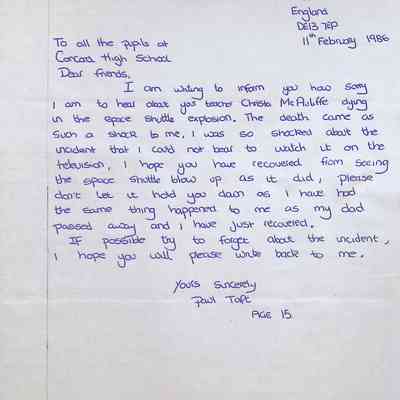 England
DE13 7EP
11th February 1986
To all the pupils at
Concord High School
Dear friends,
I am writing to inform you how sorry
I am to hear about your teacher Christa McAuliffe dying
in the space shuttle explosion. The death came as
such a shock to me. I was so shocked about the
incident that I could not bear to watch it on the
television, I hope you have recovered from seeing
the space shuttle blow up as it did, please
don't let it hold you down as I have had
the same thing happened to me as my dad
passed away and I have just recovered.
IF possible try to forget about the incident,
I hope you will please write back to me.
Yours Sincerely
Paul Toft
AGE 15